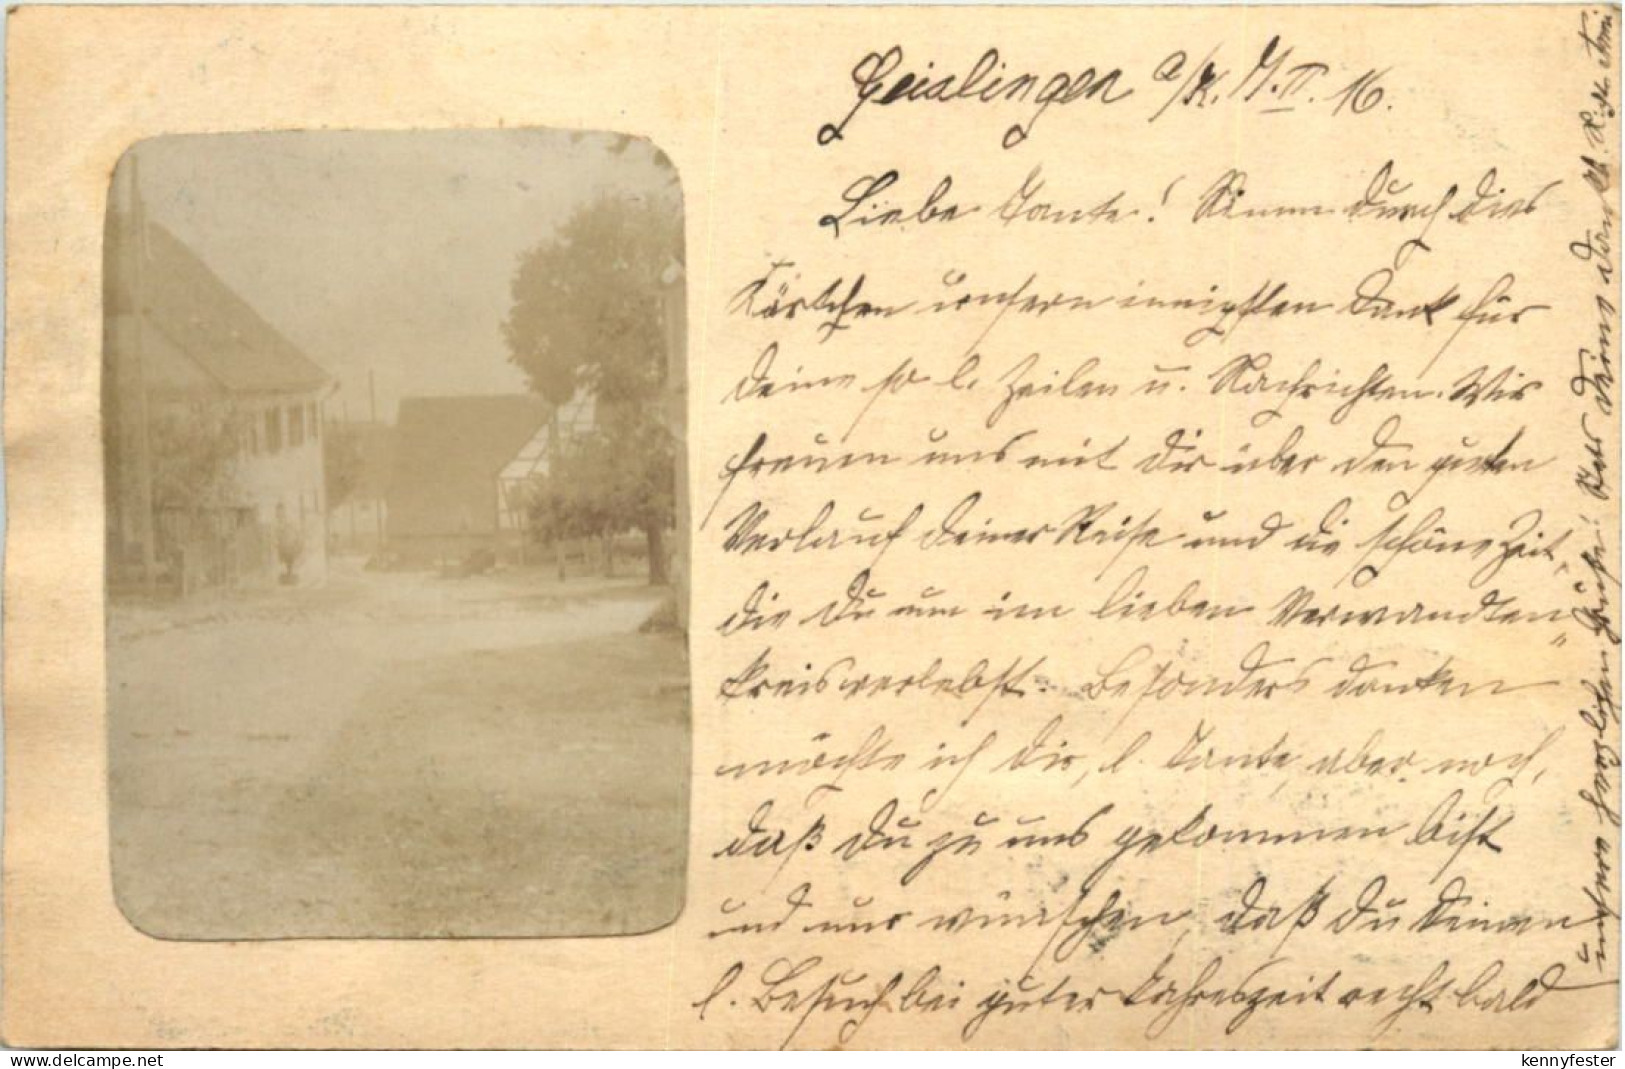 Geislingen a/K. 11.II.16.
Liebe Tante! Nimm durch dies
Kärtchen unsern innigsten Dank für
Deine so l. Zeilen u. Nachrichten. Wir
freuen uns mit Dir über den guten
Verlauf Deiner Reise und die schöne Zeit,
die Du nun im lieben Verwandten
kreis verlebst. Besonders danken
möchte ich Dir, l. Tante, aber noch,
daß Du zu uns gekommen bist
und nur wünschen, daß Du Deinen
l. Besuch bei guter Jahreszeit recht bald
unsere herzlichen Grüße! Stets Deine dankb.
www.delcampe.net
kennyfester